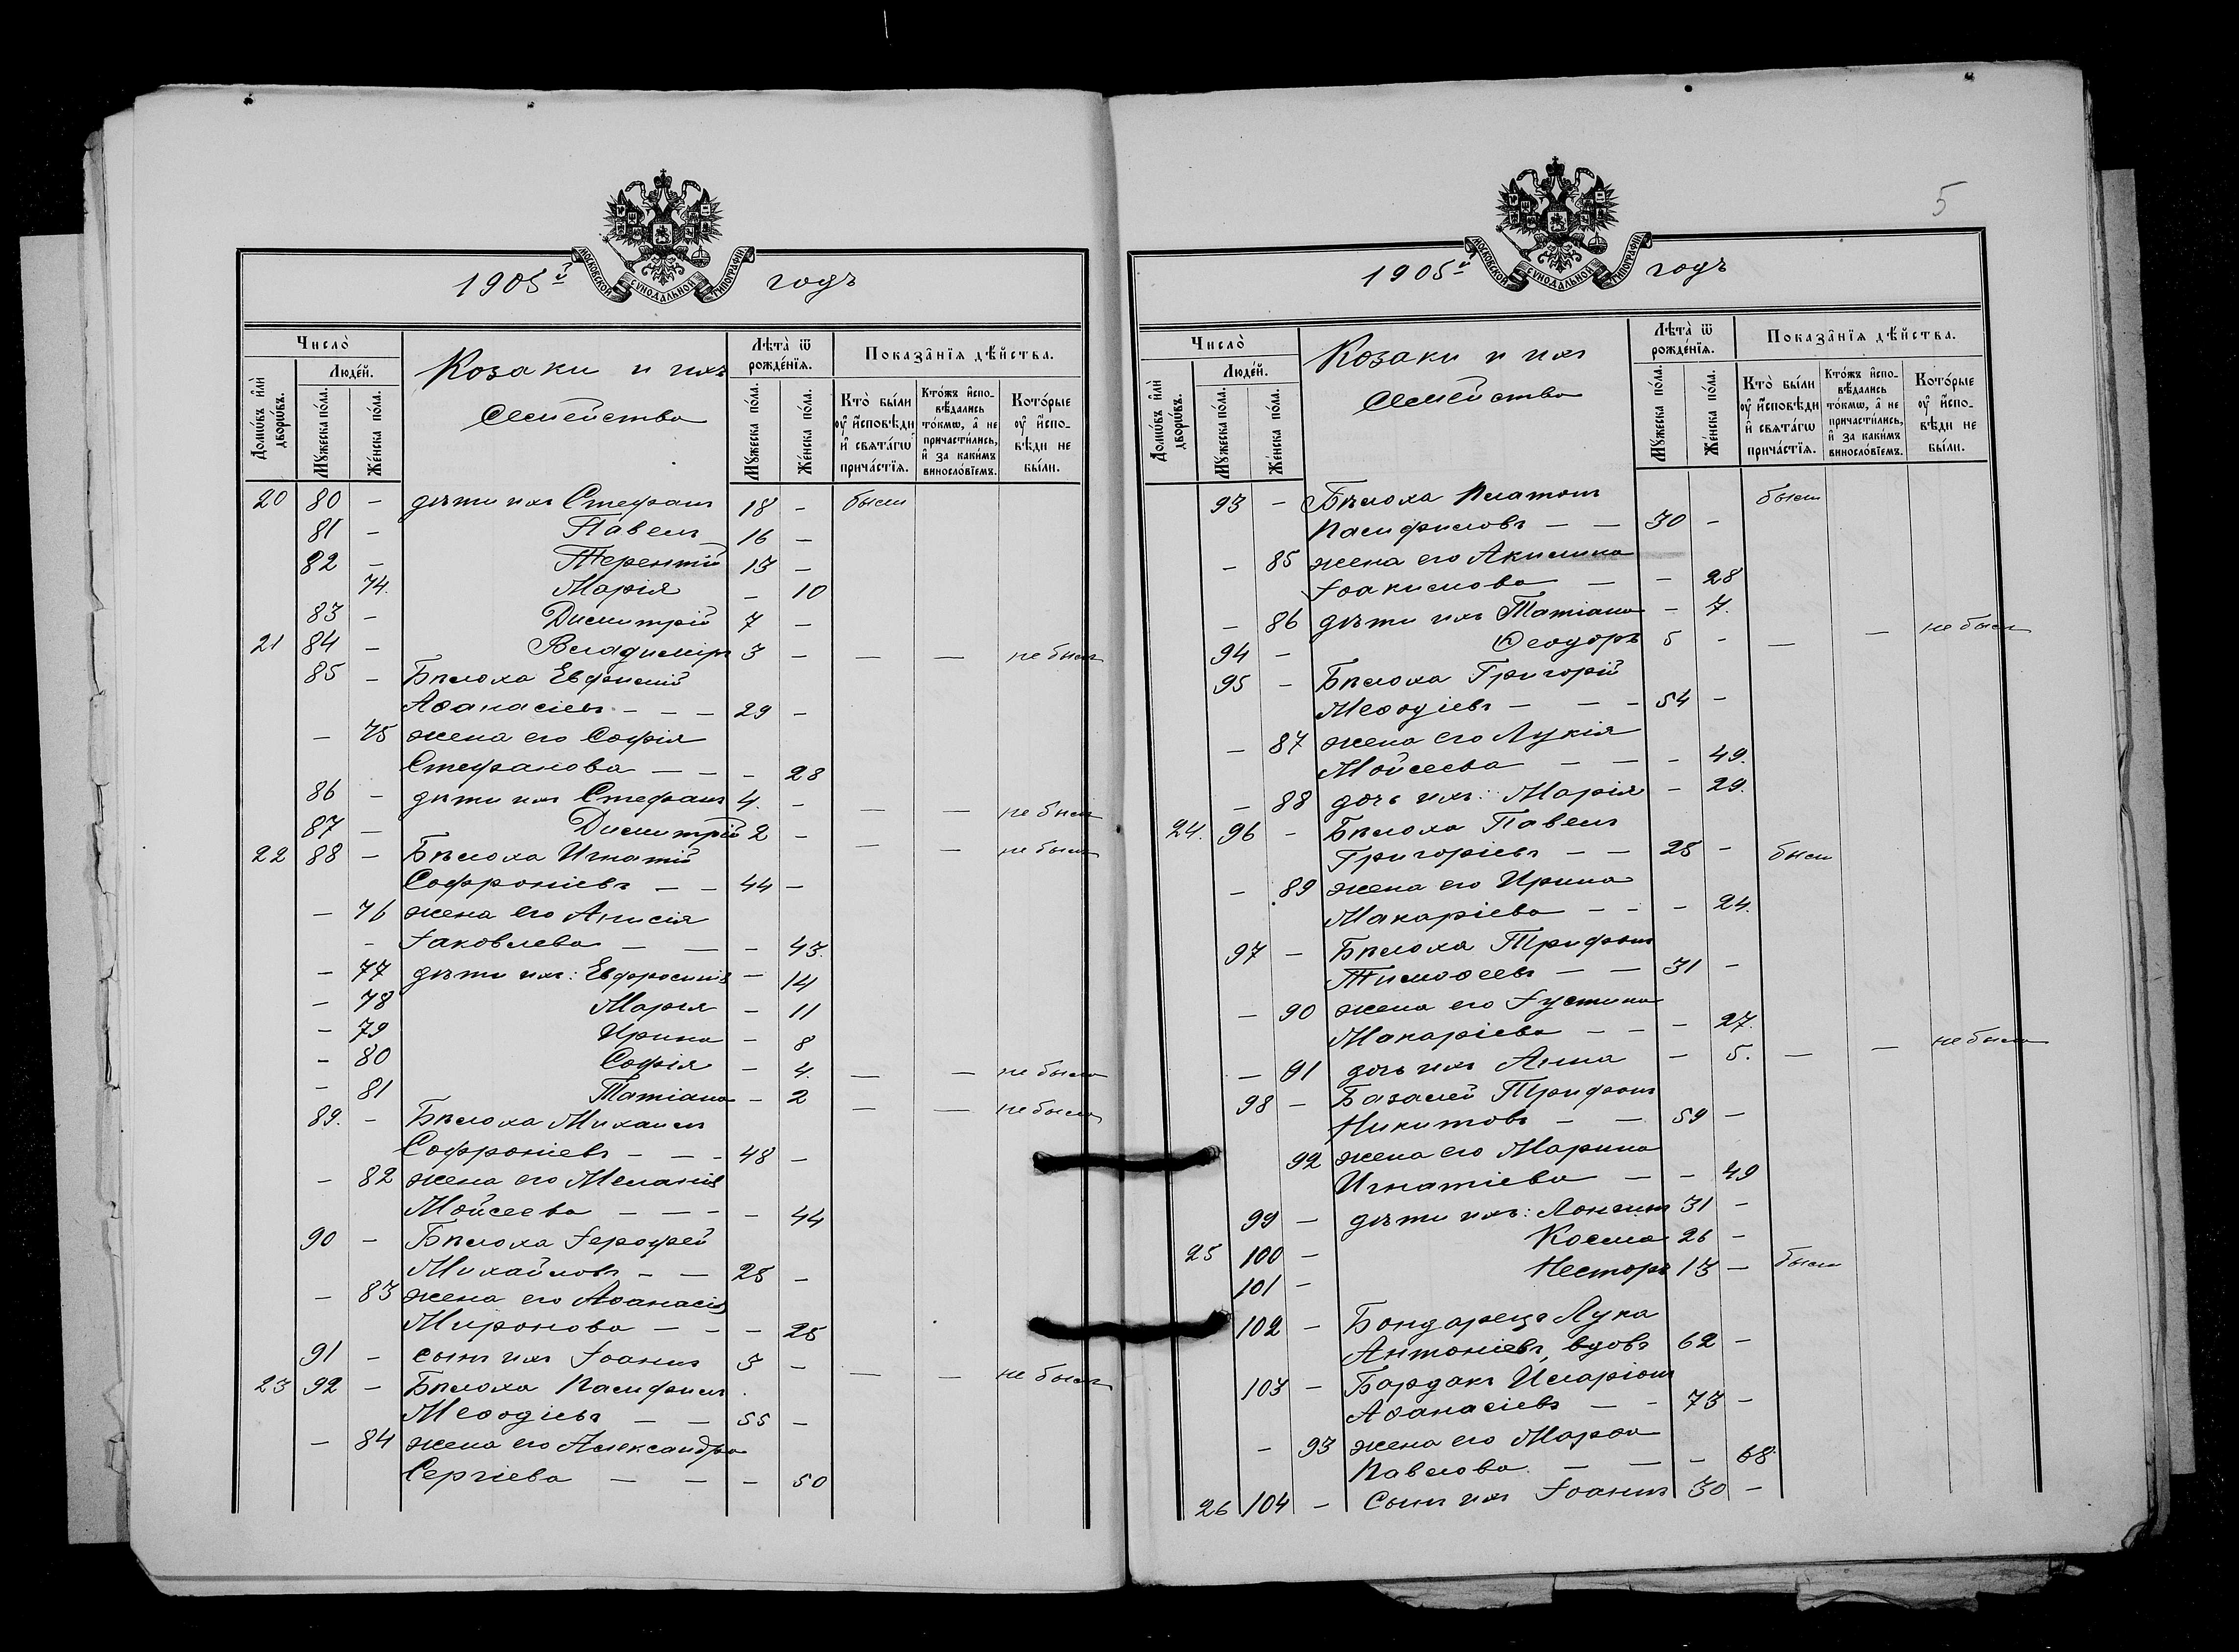 5
МОСКОВСКОЙ СѴНОДАЛЬНОЙ ТИПОГРАФІИ
1905й годъ
Число̀
Домѡ́въ и҆лѝ дворѡ́въ.
Люде́й.
Мꙋ́жеска по́ла.
Же́нска по́ла.
Козаки и ихъ
Семейства
Лѣ́та ѿ рожде́нїѧ.
Мꙋ́жеска по́ла.
Же́нска по́ла.
Показа̑нїѧ дѣ́йства.
Кто̀ бы́ли ᲂу҆ и҆́сповѣди и҆ свѧта́гѡ прича́стїѧ.
Кто́жъ и҆спо-вѣ́дались то́кмѡ, а҆ не причасти́лись, и҆ за каки́мъ винословїемъ.
Кото́рые ᲂу҆ и҆́спо-вѣди не бы́ли.
20 80 - дѣти ихъ Стефанъ 18 - были
81 - Павелъ 16 -
82 - Терентій 13 -
74. Марія - 10
83 - Димитрій 7 -
21 84 - Владиміръ 3 - - - не былъ
85 - Бѣлоха Евфимій
Аѳанасіевъ - - - 29 -
- 75 жена его Софія
Стефанова - - - 28
86 - дѣти ихъ Стефанъ 4. - - - не былъ
87 - Димитрій 2 - - - не былъ
22 88 - Бѣлоха Игнатій
Софроніевъ - - 44 -
- 76 жена его Анисія
- Іаковлева - - - 43.
- 77 дѣти ихъ: Евфросинія - 14
- 78 Марія - 11
- 79 Ирина - 8
- 80 Софія - 4. - - не была
- 81 Татіана - 2 - - не была
89. - Бѣлоха Михаилъ
Софроніевъ - - - 48 -
- 82 жена его Меланія
Мойсеева - - - - 44
90 - Бѣлоха Іероѳей
Михайловъ - - 25 -
- 83 жена его Аѳанасія
Миронова - - - 25
91 - сынъ ихъ Іоаннъ 3 - - - не былъ
23 92 - Бѣлоха Памфилъ
Меѳодіевъ - - 55 -
- 84 жена его Александра
Сергіева - - - 50
МОСКОВСКОЙ СѴНОДАЛЬНОЙ ТИПОГРАФІИ
1905й годъ
Число̀
Домѡ́въ и҆лѝ дворѡ́въ.
Люде́й.
Мꙋ́жеска по́ла.
Же́нска по́ла.
Козаки и ихъ
Семейства
Лѣ́та ѿ рожде́нїѧ.
Мꙋ́жеска по́ла.
Же́нска по́ла.
Показа̑нїѧ дѣ́йства.
Кто̀ бы́ли ᲂу҆ и҆́сповѣди и҆ свѧта́гѡ прича́стїѧ.
Кто́жъ и҆спо-вѣ́дались то́кмѡ, а҆ не причасти́лись, и҆ за каки́мъ винословїемъ.
Кото́рые ᲂу҆ и҆́спо-вѣди не бы́ли.
93 - Бѣлоха Платонъ были
Памфиловъ - - 30 -
- 85 жена его Акилина
Іоакимова - - 28
- 86 дѣти ихъ Татіана - 7.
94 - Ѳеодоръ 5 - - - не былъ
95 - Бѣлоха Григорій
Меѳодіевъ - - - 54 -
- 87 жена его Лукія
Мойсеева - - - 49.
- 88 дочь ихъ: Марія - 29.
24. 96 - Бѣлоха Павелъ
Григоріевъ - - 25 - были
- 89 жена его Ирина
Макаріева - - - 24.
97 - Бѣлоха Трифонъ
Тимоѳеевъ - - 31 -
- 90 жена его Іустина
Макаріева - - - 27.
- 91 дочь ихъ Анна - 5. - - не была
98 - Базалей Трифонъ
Никитовъ - - 59 -
92 жена его Марина
Игнатіева - - 49
99 - дѣти ихъ: Лонгинъ 31 -
25 100 - Косма 26 -
101 - Несторъ 13 - были
102 - Бондарецъ Лука
Антоніевъ, вдовъ 62 -
103 - Бардакъ Иларіонъ
Аѳанасіевъ - - 73 -
- 93 жена его Марѳа
Павлова - - - 68.
26 104 - Сынъ ихъ Іоаннъ 30 -